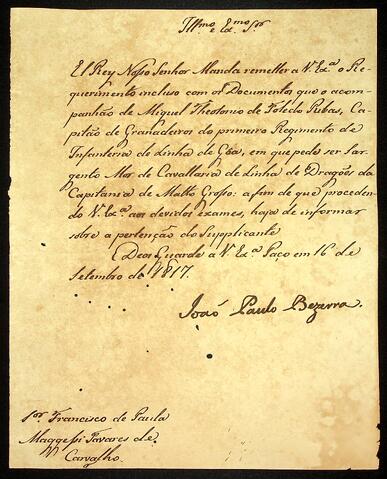 Illmo. e Exmo. Sr.
El Rey Nosso Senhor Manda remetter a V. Exa. o Re-
querimento incluso com os Documentos que o acom-
panhão de Miguel Theotonio de Toledo Ribas, Ca-
pitão de Granadeiros do primeiro Regimento de
Infanteria de Linha de Gôa, em que pede ser Sar-
gento Mor de Cavallaria de Linha de Dragões da
Capitania de Matto Grosso: a fim de que proceden-
do V. Exa. aos devidos exames, haja de informar
sobre a pertenção do Supplicante
Deos Guarde a V. Exa. Paço em 16 de
Setembro de 1817.
João Paulo Bezerra.
Sor. Francisco de Paula
Maggessi Tavares de
Carvalho.